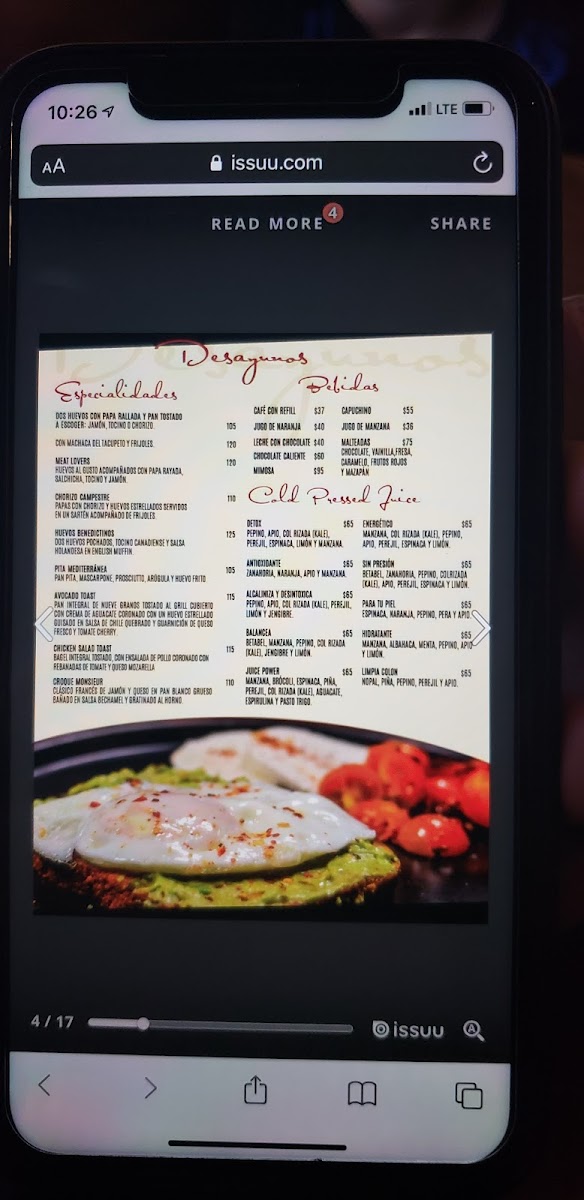 10:26
LTE
AA
issuu.com
READ MORE
4
SHARE
Desayunos
Desayunos
Especialidades
DOS HUEVOS CON PAPA RALLADA Y PAN TOSTADO
A ESCOGER: JAMÓN, TOCINO O CHORIZO. 105
CON MACHACA DEL TACUPETO Y FRIJOLES. 120
MEAT LOVERS 120
HUEVOS AL GUSTO ACOMPAÑADOS CON PAPA RAYADA,
SALCHICHA, TOCINO Y JAMÓN.
CHORIZO CAMPESTRE 110
PAPAS CON CHORIZO Y HUEVOS ESTRELLADOS SERVIDOS
EN UN SARTÉN ACOMPAÑADO DE FRIJOLES.
HUEVOS BENEDICTINOS 125
DOS HUEVOS POCHADOS, TOCINO CANADIENSE Y SALSA
HOLANDESA EN ENGLISH MUFFIN.
PITA MEDITERRÁNEA 105
PAN PITA, MASCARPONE, PROSCIUTTO, ARÚGULA Y HUEVO FRITO
AVOCADO TOAST 115
PAN INTEGRAL DE NUEVE GRANOS TOSTADO AL GRILL CUBIERTO
CON CREMA DE AGUACATE CORONADO CON UN HUEVO ESTRELLADO
GUISADO EN SALSA DE CHILE QUEBRADO Y GUARNICIÓN DE QUESO
FRESCO Y TOMATE CHERRY.
CHICKEN SALAD TOAST 115
BAGEL INTEGRAL TOSTADO, CON ENSALADA DE POLLO CORONADO CON
REBANADAS DE TOMATE Y QUESO MOZARELLA
CROQUE MONSIEUR 110
CLÁSICO FRANCÉS DE JAMÓN Y QUESO EN PAN BLANCO GRUESO
BAÑADO EN SALSA BECHAMEL Y GRATINADO AL HORNO.
Bebidas
CAFÉ CON REFILL $37
JUGO DE NARANJA $40
LECHE CON CHOCOLATE $40
CHOCOLATE CALIENTE $60
MIMOSA $95
CAPUCHINO $55
JUGO DE MANZANA $36
MALTEADAS $75
CHOCOLATE, VAINILLA,FRESA,
CARAMELO, FRUTOS ROJOS
Y MAZAPÁN
Cold Pressed Juice
DETOX $65
PEPINO, APIO, COL RIZADA (KALE),
PEREJIL, ESPINACA, LIMÓN Y MANZANA.
ANTIOXIDANTE $65
ZANAHORIA, NARANJA, APIO Y MANZANA.
ALCALINIZA Y DESINTOXICA $65
PEPINO, APIO, COL RIZADA (KALE), PEREJIL,
LIMÓN Y JENGIBRE.
BALANCEA $65
BETABEL, MANZANA, PEPINO, COL RIZADA
(KALE), JENGIBRE Y LIMÓN.
JUICE POWER $65
MANZANA, BRÓCOLI, ESPINACA, PIÑA,
PEREJIL, COL RIZADA (KALE), AGUACATE,
ESPIRULINA Y PASTO TRIGO.
ENERGÉTICO $65
MANZANA, COL RIZADA (KALE), PEPINO,
APIO, PEREJIL, ESPINACA Y LIMÓN.
SIN PRESIÓN $65
BETABEL, ZANAHORIA, PEPINO, COLRIZADA
(KALE), APIO, PEREJIL, ESPINACA Y LIMÓN.
PARA TU PIEL $65
ESPINACA, NARANJA, PEPINO, PERA Y APIO
HIDRATANTE $65
MANZANA, ALBAHACA, MENTA, PEPINO, APIO
Y LIMÓN.
LIMPIA COLON $65
NOPAL, PIÑA, PEPINO, PEREJIL Y APIO.
4 / 17
issuu
A